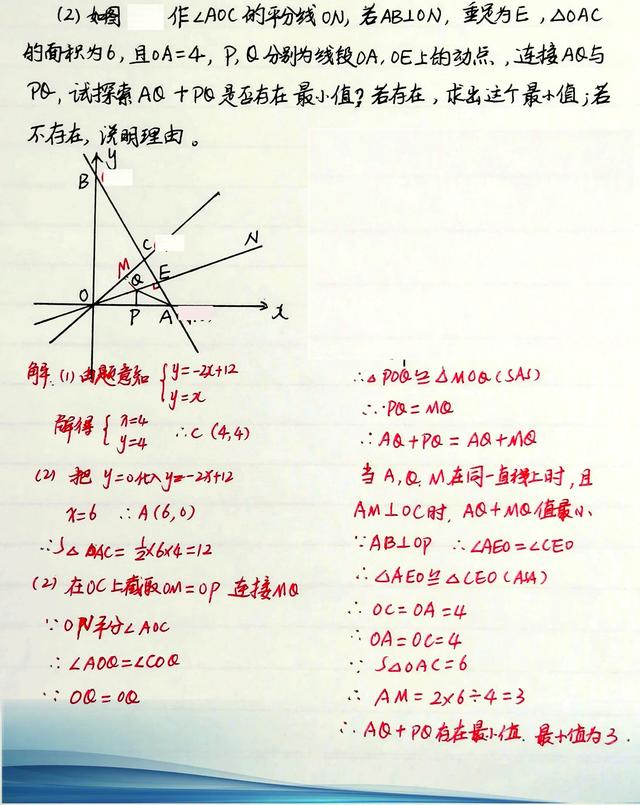 (2) 如图 作∠AOC的平分线ON,若AB⊥ON,垂足为E,△OAC
的面积为6,且OA=4,P,Q分别为线段OA、OE上的动点,连接AQ与
PQ,试探索AQ+PQ是否存在最小值?若存在,求出这个最小值;若
不存在,说明理由。
y
B
C
N
M
E
Q
O
P
A
x
解(1)由题意知 { y=-2x+12
y=x
解得 { x=4
y=4 ∴C(4,4)
(2) 把 y=0代入y=-2x+12
x=6 ∴A(6,0)
∴S△OAC=½×6×4=12
(2) 在OC上截取OM=OP 连接MQ
∵ON平分∠AOC
∴∠AOQ=∠COQ
∵OQ=OQ
∴△POQ≌△MOQ(SAS)
∴PQ=MQ
∴AQ+PQ=AQ+MQ
当A,Q,M在同一直线上时,且
AM⊥OC时,AQ+MQ值最小
∵AB⊥OP ∴∠AEO=∠CEO
∴△AEO≌△CEO(ASA)
∴OC=OA=4
∴OA=OC=4
∵S△OAC=6
∴AM=2×6÷4=3
∴AQ+PQ存在最小值.最小值为3.